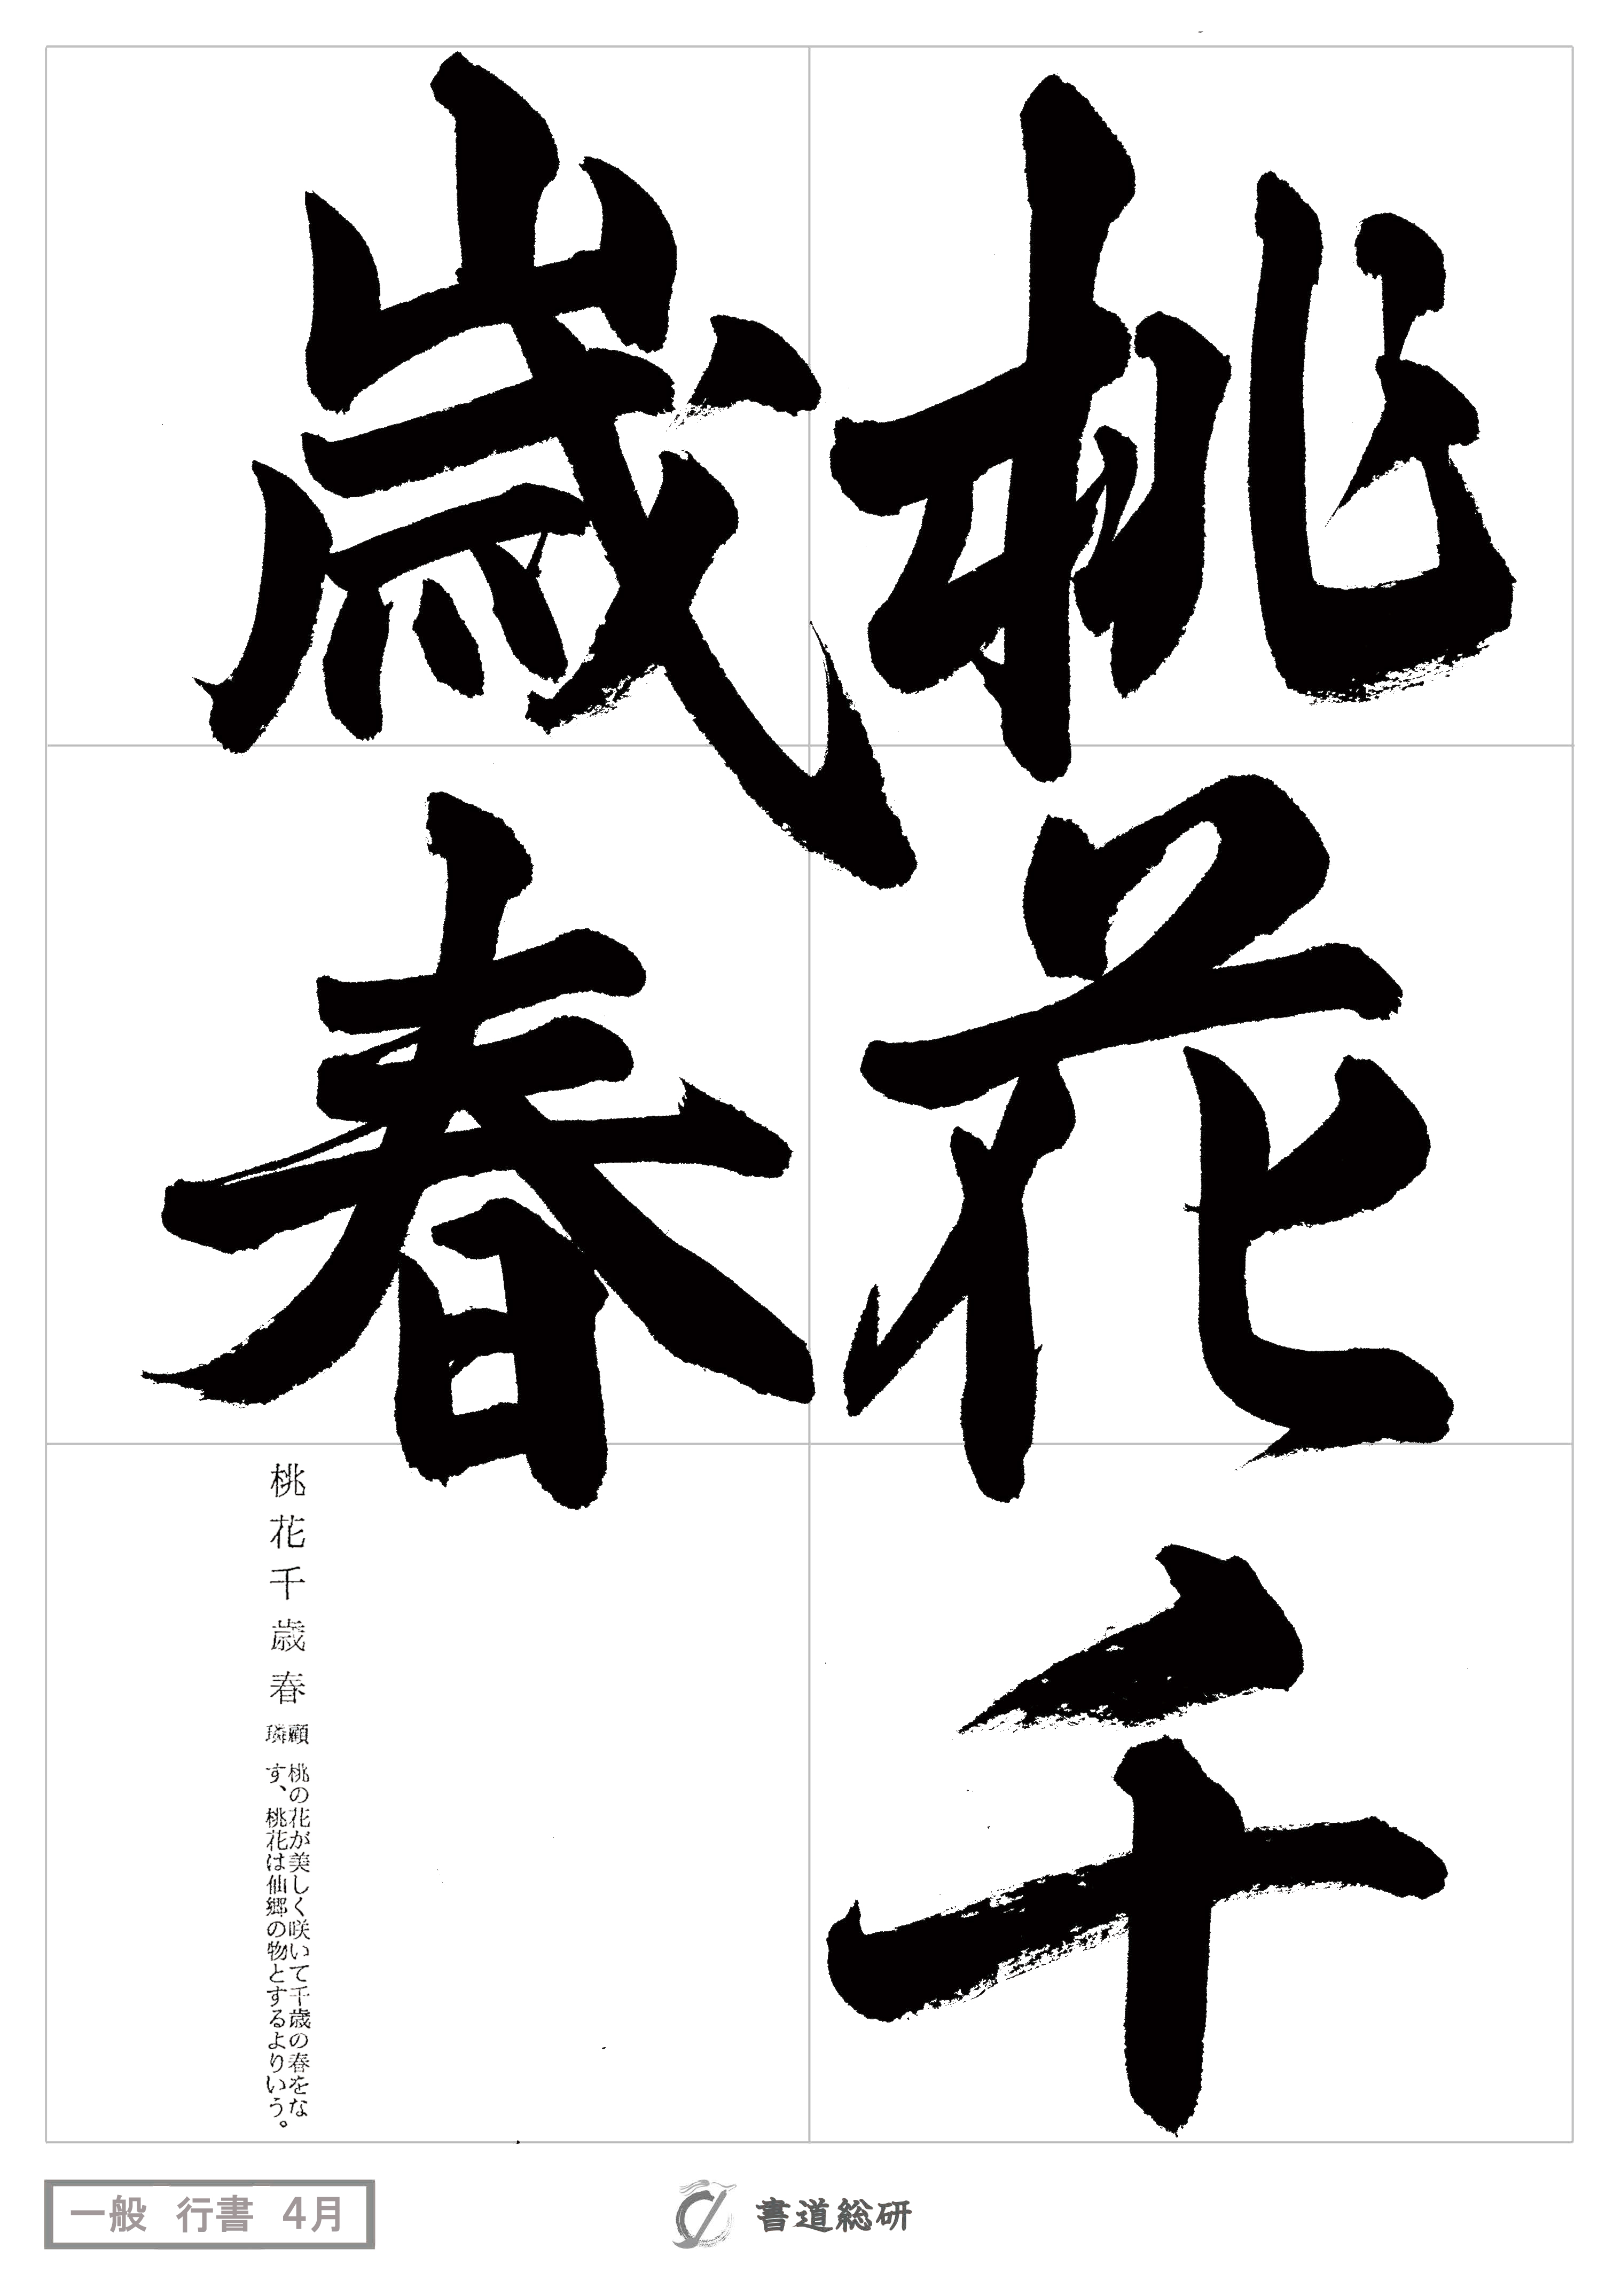 桃花千
歳春
桃花千歳春
顧璘
桃の花が美しく咲いて千歳の春をな
す、桃花は仙郷の物とするよりいう。
一般 行書 4月
書道総研